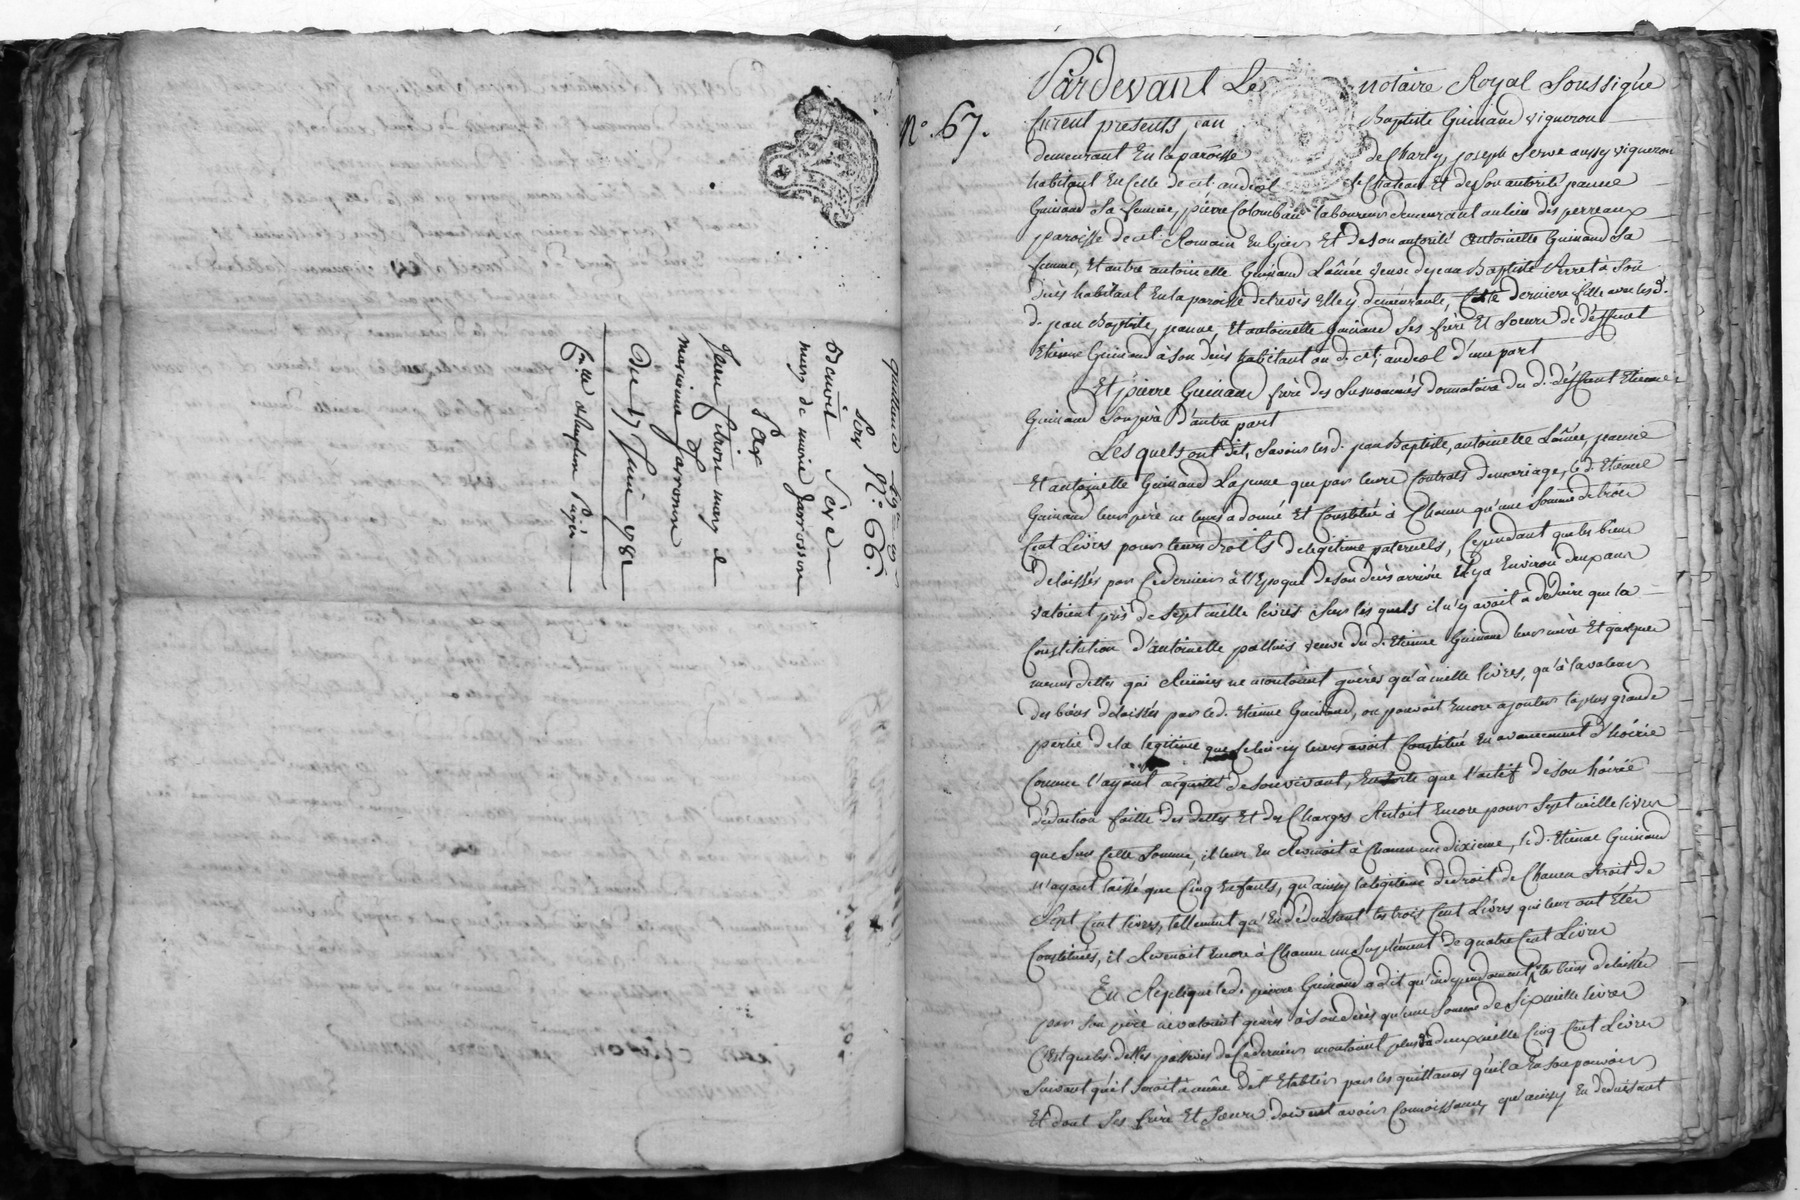 N.° 66.
Sery
benoit Seve
mary de marie Jarrosson
Par
Jean Citron mary de
marianne Jarrosson
Du 17 Juin 1781
N.° 67.
Pardevant Le notaire Royal Soussigné
furent presents jean Baptiste Guinand vigneron
demeurant En la paroisse de Charly, joseph Serve aussy vigneron
habitant En Celle de st. andeol le Chateau Et de Son autorité jeanne
Guinand Sa femme, pierre Colomban laboureur demeurant au lieu des perreaux
paroisse de st. Romain En Gier Et de Son autorité antoinette Guinand Sa
femme, Et autre antoinette Guinand L'ainée veuve de jean Baptiste Perret à Son
deces habitant En la paroisse de treves Elle y demeurante, Cette derniere fille avec les d.
d. jean Baptiste, jeanne, Et antoinette Guinand Ses frere Et Soeurs de deffunt
Etienne Guinand à Son deces habitant au d. st. andeol d'une part
Et pierre Guinand frere des Susnommés donnataire du d. deffunt Etienne
Guinand Son pere d'autre part
Les quels ont dit, Savoir les d. jean Baptiste, antoinette L'ainée, jeanne
Et antoinette Guinand La jeune que par leurs Contrats de mariage, le d. Etienne
Guinand leur père ne leurs a donné Et Constitué à Chacun qu'une Somme de trois
Cent Livres pour leurs droits de legitime paternels, Cependant que les biens
delaissés par Ce dernier à l'Epoque de Son deces arrivé Il y a Environ deux ans
valoient près de Sept mille livres Sur les quels il n'y avoit à deduire que la
Constitution d'antoinette veuve du d. Etienne Guinand leur mere Et quelques
menus dettes qui Reünies ne montoient guères qu'à mille livres, qu'à la valeur
des biens delaissés par le d. Etienne Guinand, on pouvoit Encore ajouter la plus grande
partie de la legitime que Celui-cy leurs avoit Constitué En avancement d'hoirie
Comme l'ayant acquitté de Son vivant, En Sorte que l'actif de Son hoirie
deduction faitte des dettes Et des Charges Restoit Encore pour Sept mille livres
que Sur Cette Somme, il leur En Revenoit à Chacun un dixieme, le d. Etienne Guinand
n'ayant laissé que Cinq Enfants, qu'ainsy la legitime de droit de Chacun Seroit de
Sept Cent livres, tellement qu'En deduisant les trois Cent Livres qui leur ont Etés
Constitués, il Revenoit Encore à Chacun un Suplement de quatre Cent Livres
En Replique le d. pierre Guinand a dit qu'independament les biens delaissés
par Son père ne valoient guères à Son deces qu'une Somme de Six mille livres
C'est que les dettes passives de Ce dernier montoient plus de deux mille Cinq Cent Livres
Suivant qu'il Seroit à même de l'Etablir par les quittances qu'il a En Son pouvoir
Et dont Ses frere Et Soeurs doivent avoir Connoissance, qu'ainsy En deduisant